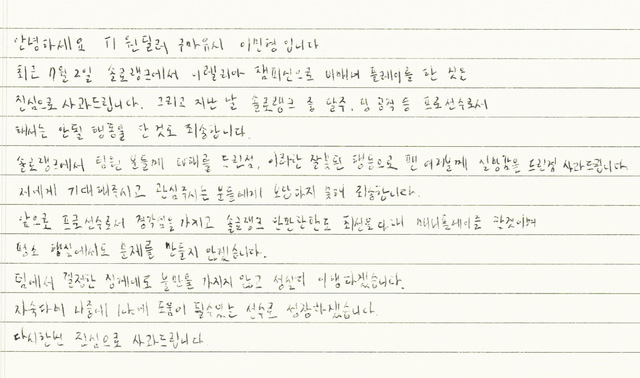 안녕하세요 T1 원딜러 구마유시 이민형 입니다
최근 7월 2일 솔로랭크에서 이렐리아 챔피언으로 비매너 플레이를 한 것은
진심으로 사과드립니다. 그리고 지난 날 솔로랭크 중 탈주, 팀 공격 등 프로선수로서
해서는 안될 행동을 한 것도 죄송합니다.
솔로랭크에서 팀원 분들께 피해를 드린점, 이러한 잘못된 행동으로 팬 여러분께 실망감을 드린점 사과드립니다
저에게 기대해주시고 관심주시는 분들에게 보답하지 못해 죄송합니다.
앞으로 프로선수로서 경각심을 가지고 솔로랭크 한판한판도 최선을 다해 매너플레이를 할것이며
평소 행실에서도 문제를 만들지 않겠습니다.
팀에서 결정한 징계에도 불만을 가지지 않고 성실히 이행하겠습니다.
자숙하며 나중에 도움이 될수있는 선수로 성장하겠습니다.
다시한번 진심으로 사과드립니다